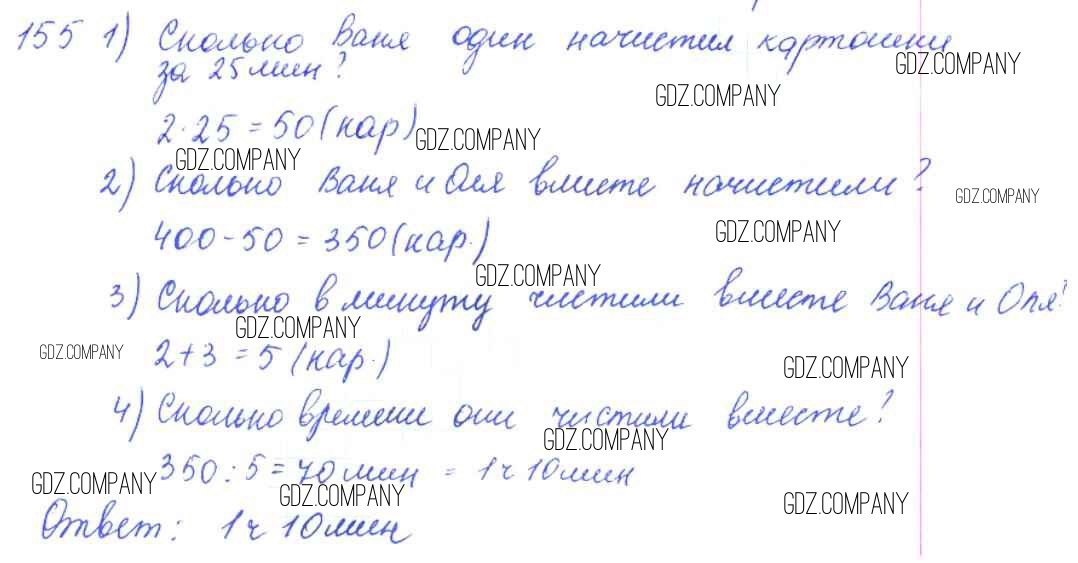 155 1) Сколько Ваня один начистил картошки
GDZ.COMPANY
за 25 мин?
GDZ.COMPANY
2·25 = 50 (кар)
GDZ.COMPANY
GDZ.COMPANY
2) Сколько Ваня и Оля вместе начистили?
GDZ.COMPANY
400-50 = 350 (кар.)
GDZ.COMPANY
GDZ.COMPANY
3) Сколько в минуту чистили вместе Ваня и Оля?
GDZ.COMPANY
GDZ.COMPANY
2+3 = 5 (кар.)
GDZ.COMPANY
4) Сколько времени они чистили вместе?
GDZ.COMPANY
350:5 = 70 мин = 1ч 10 мин
GDZ.COMPANY
GDZ.COMPANY
GDZ.COMPANY
Ответ: 1ч 10 мин